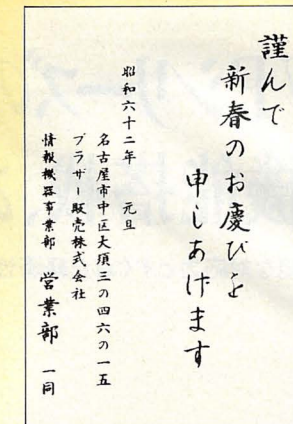 謹んで
新春のお慶びを
申しあげます
昭和六十二年　元旦
名古屋市中区大須三の四六の一五
ブラザー販売株式会社
情報機器事業部　営業部　一同